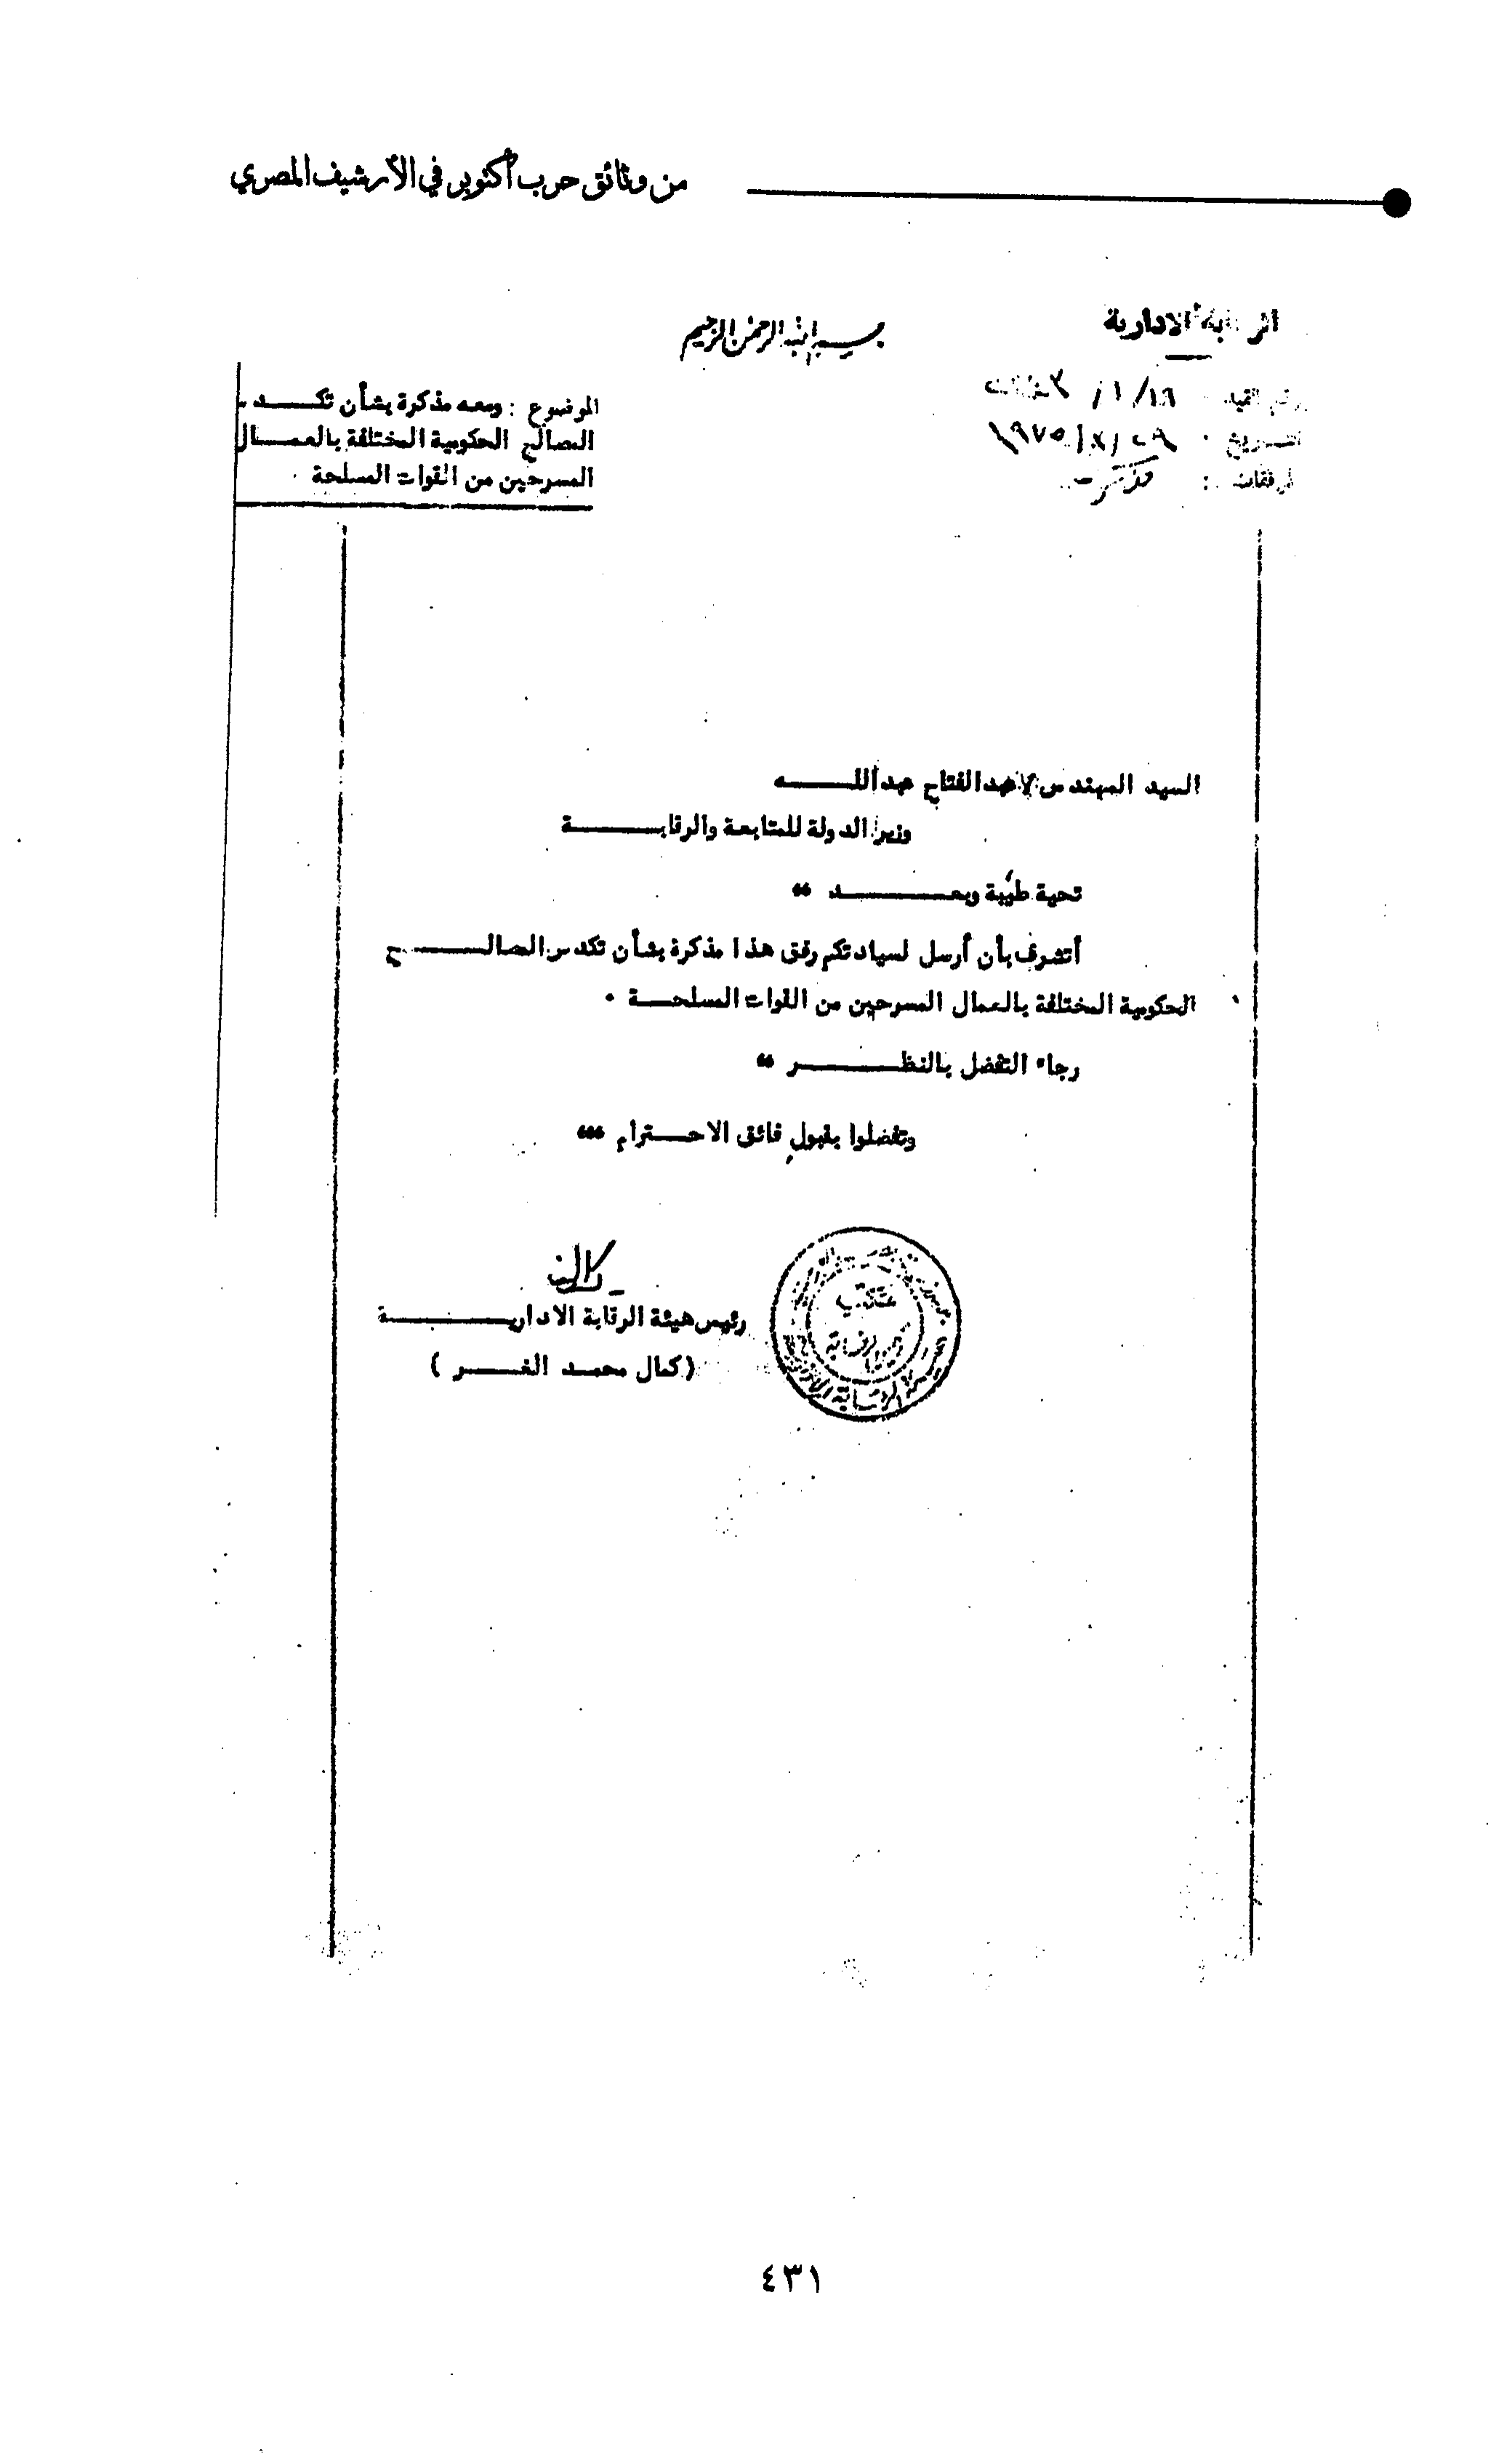 من وثائق حرب أكتوبر في الأرشيف المصري
الرقابة الادارية
بسم الله الرحمن الرحيم
رقم القيد ١/١٦/
التاريخ ١٩٧٥/ /٢٩
المرفقات : مذكرة
الموضوع : ومعه مذكرة بشأن تكـــدس
المصالح الحكومية المختلفة بالعمـــال
المسرحين من القوات المسلحة ٠
السيد المهندس / عبد الفتاح عبد اللـــــه
وزير الدولة للمتابعة والرقابـــــــة
تحية طيبة وبعـــــــد ،،
أتشرف بأن أرسل لسيادتكم رفق هذا مذكرة بشأن تكدس المصالـــــح
الحكومية المختلفة بالعمال المسرحين من القوات المسلحـــة ٠
رجاء التفضل بالنظـــــــر ،،
وتفضلوا بقبول فائق الاحـــترام ،،،
رئيس هيئة الرقابة الاداريـــــــــة
(كمال محمـد الغـــــر )
مكتب
٤٣١